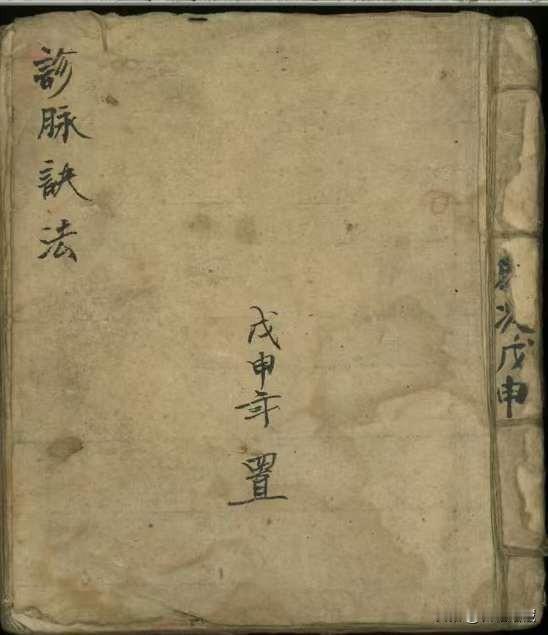 診脉訣法
戊申年置
戊申